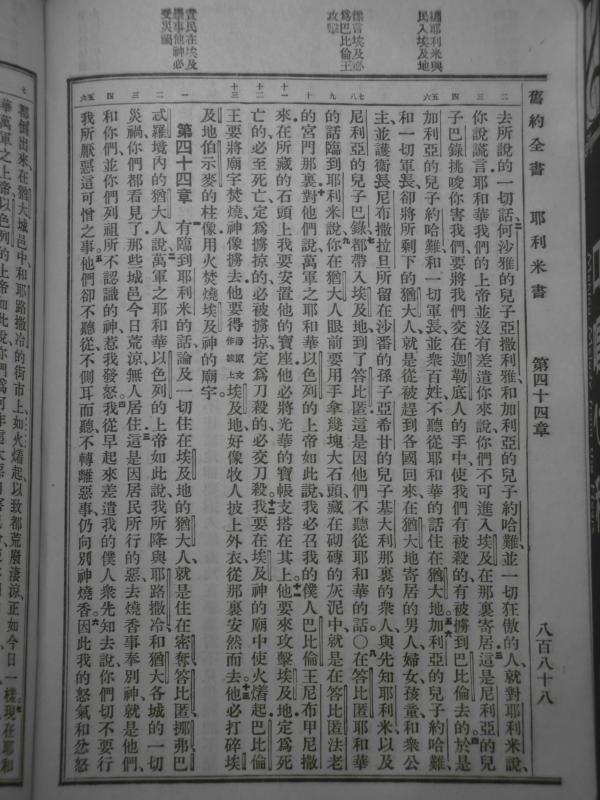 攜耶利米與
民入埃及地
預言埃及必
為巴比倫王
攻擊
責民在埃及
事他神必
受災禍
舊約全書 耶利米書 第四十四章 八百八十八
去所說的一切話何沙雅的兒子亞撒利雅和加利亞的兒子約哈難並一切狂傲的人就對耶利米說、
你說謊言耶和華我們的上帝並沒有差遣你來說你們不可進入埃及在那裏寄居這是尼利亞的兒
子巴錄挑唆你害我們要將我們交在迦勒底人的手中使我們有被殺的有被擄到巴比倫去的於是
加利亞的兒子約哈難和一切軍長並衆百姓不聽從耶和華的話住在猶大地加利亞的兒子約哈難
和一切軍長卻將所剩下的猶大人就是從被趕到各國回來在猶大地寄居的男人婦女孩童和衆公
主並護衛長尼布撒拉旦所留在沙番的孫子亞希甘的兒子基大利那裏的衆人與先知耶利米以及
尼利亞的兒子巴錄都帶入埃及地到了答比匿這是因他們不聽從耶和華的話○在答比匿耶和華
的話臨到耶利米說你在猶大人眼前要用手拿幾塊大石頭藏在砌磚的灰泥中就是在答比匿法老
的宮門那裏對他們說萬軍之耶和華以色列的上帝如此說我必召我的僕人巴比倫王尼布甲尼撒
來在所藏的石頭上我要安置他的寶座他必將光華的寶帳支搭在其上他要來攻擊埃及地定為死
亡的必至死亡定為擄掠的必被擄掠定為刀殺的必交刀殺我要在埃及神的廟中使火燒起巴比倫
王要將廟宇焚燒神像擄去他要得埃及地好像牧人披上外衣從那裏安然而去他必打碎埃
及地伯示麥的柱像用火焚燒埃及神的廟宇
第四十四章 有臨到耶利米的話論及一切住在埃及地的猶大人就是住在密奪答比匿挪弗巴
忒羅境內的猶大人說萬軍之耶和華以色列的上帝如此說我所降與耶路撒冷和猶大各城的一切
災禍你們都看見了那些城邑今日荒涼無人居住這是因居民所行的惡去燒香事奉別神就是他們、
和你們並你們列祖所不認識的神惹我發怒我從早起來差遣我的僕人衆先知去說你們切不要行
我所厭惡這可憎之事他們卻不聽從不側耳而聽不轉離惡事仍向別神燒香因此我的怒氣和忿怒
都倒出來在猶大城邑中和耶路撒冷的街市上如火燒起以致都荒廢淒涼正如今日一樣現在耶和
華萬軍之上帝以色列的上帝如此說你們為何作這大惡